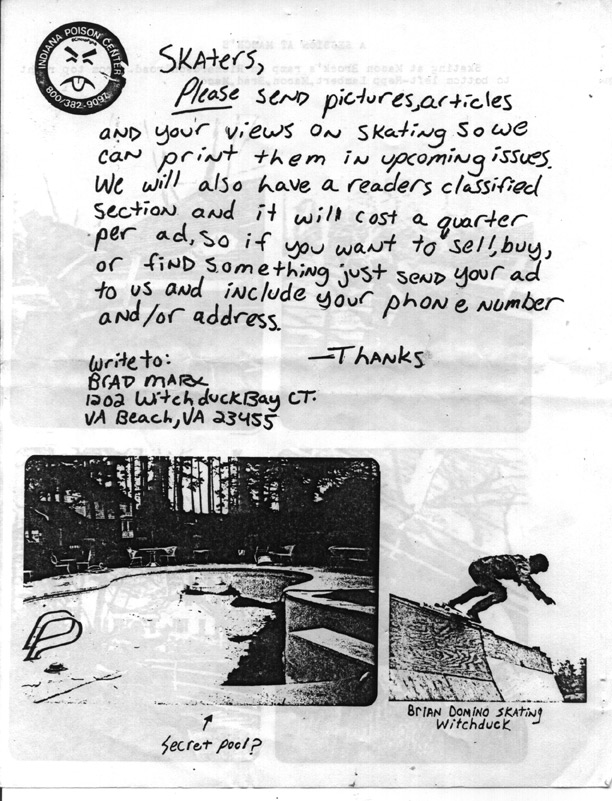 INDIANA POISON CENTER
800/382-9097
SKATERS,
Please SEND pictures, articles
AND your views ON skating so we
can print them in upcoming issues.
We will also have a readers classified
section and it will cost a quarter
per ad, so if you want to sell, buy,
or find something just send your ad
to us and include your phone number
and/or address.
—THANKS
Write to:
BRAD MARX
1202 Witchduck Bay CT.
VA Beach, VA 23455
BRIAN DOMINO SKATING
Witchduck
Secret pool?